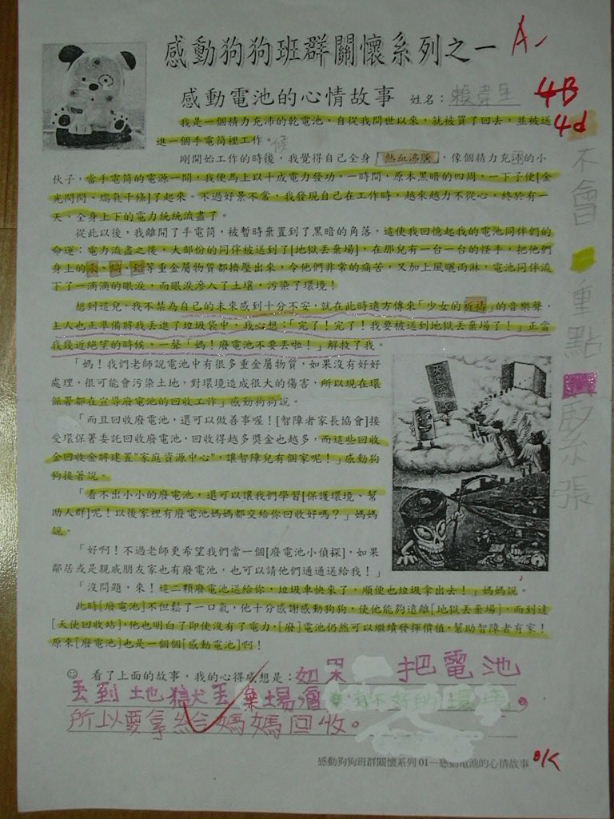 感動狗狗班群關懷系列之一
A-
感動電池的心情故事 姓名：賴
4B
4d
我是一個精力充沛的乾電池，自從我問世以來，就被買了回去，並被送
進一個手電筒裡工作。
候
剛開始工作的時後，我覺得自己全身「熱血沸騰」，像個精力充沛的小
伙子，當手電筒的電源一開，我便馬上以十成電力發功，一時間，原本黑暗的四周，一下子便[金
光閃閃、瑞氣千條]了起來。不過好景不常，我發現自己在工作時，越來越力不從心，終於有一
天，全身上下的電力統統流盡了。
從此以後，我離開了手電筒，被暫時棄置到了黑暗的角落，這使我回憶起我的電池同伴們的
命運：電力流盡之後，大部份的同伴被送到了[地獄丟棄場]，在那兒有一台一台的怪手，把他們
身上的汞、鎘、錳等重金屬物質都擠壓出來，令他們非常的痛苦，又加上風曬雨淋，電池同伴流
下了一滴滴的眼淚，而眼淚滲入了土壤，污染了環境！
想到這兒，我不禁為自己的未來感到十分不安，就在此時遠方傳來「少女的祈禱」的音樂聲，
主人也正準備將我丟進了垃圾袋中，我心想：「完了！完了！我要被送到地獄丟棄場了！」正當
我幾近絕望的時候，一聲「媽！廢電池不要丟啦！」解救了我。
「媽！我們老師說電池中有很多重金屬物質，如果沒有好好
處理，很可能會污染土地，對環境造成很大的傷害，所以現在環
保署都在宣導廢電池的回收工作」感動狗狗說。
「而且回收廢電池，還可以做善事喔！[智障者家長協會]接
受環保署委託回收廢電池，回收得越多獎金也越多，而這些回收
金回收金將建置"家庭資源中心"，讓智障兒有個家呢！」感動狗
狗接著說。
「看不出小小的廢電池，還可以讓我們學習[保護環境、幫
助人群]呢！以後家裡有廢電池媽媽都交給你回收好嗎？」媽媽
說。
「好啊！不過老師更希望我們當一個[廢電池小偵探]，如果
鄰居或是親戚朋友家也有廢電池，也可以請他們通通送給我！」
「沒問題，來！這二顆廢電池送給你，垃圾車快來了，順便也垃圾拿出去！」媽媽說。
此時[廢電池]不但鬆了一口氣，他十分感謝感動狗狗，使他能夠遠離[地獄丟棄場]，而到達
[天使回收站]，他也明白了即使沒有了電力，[廢]電池仍然可以繼續發揮價值，幫助智障者有家！
原來[廢電池]也是一個個[感動電池]啊！
不會
重點
誇張
☺ 看了上面的故事，我的心得感想是：如果 把電池
丟到土地獄丟棄場會
所以要拿給媽媽回收。
感動狗狗班群關懷系列 01—感動電池的心情故事
OK